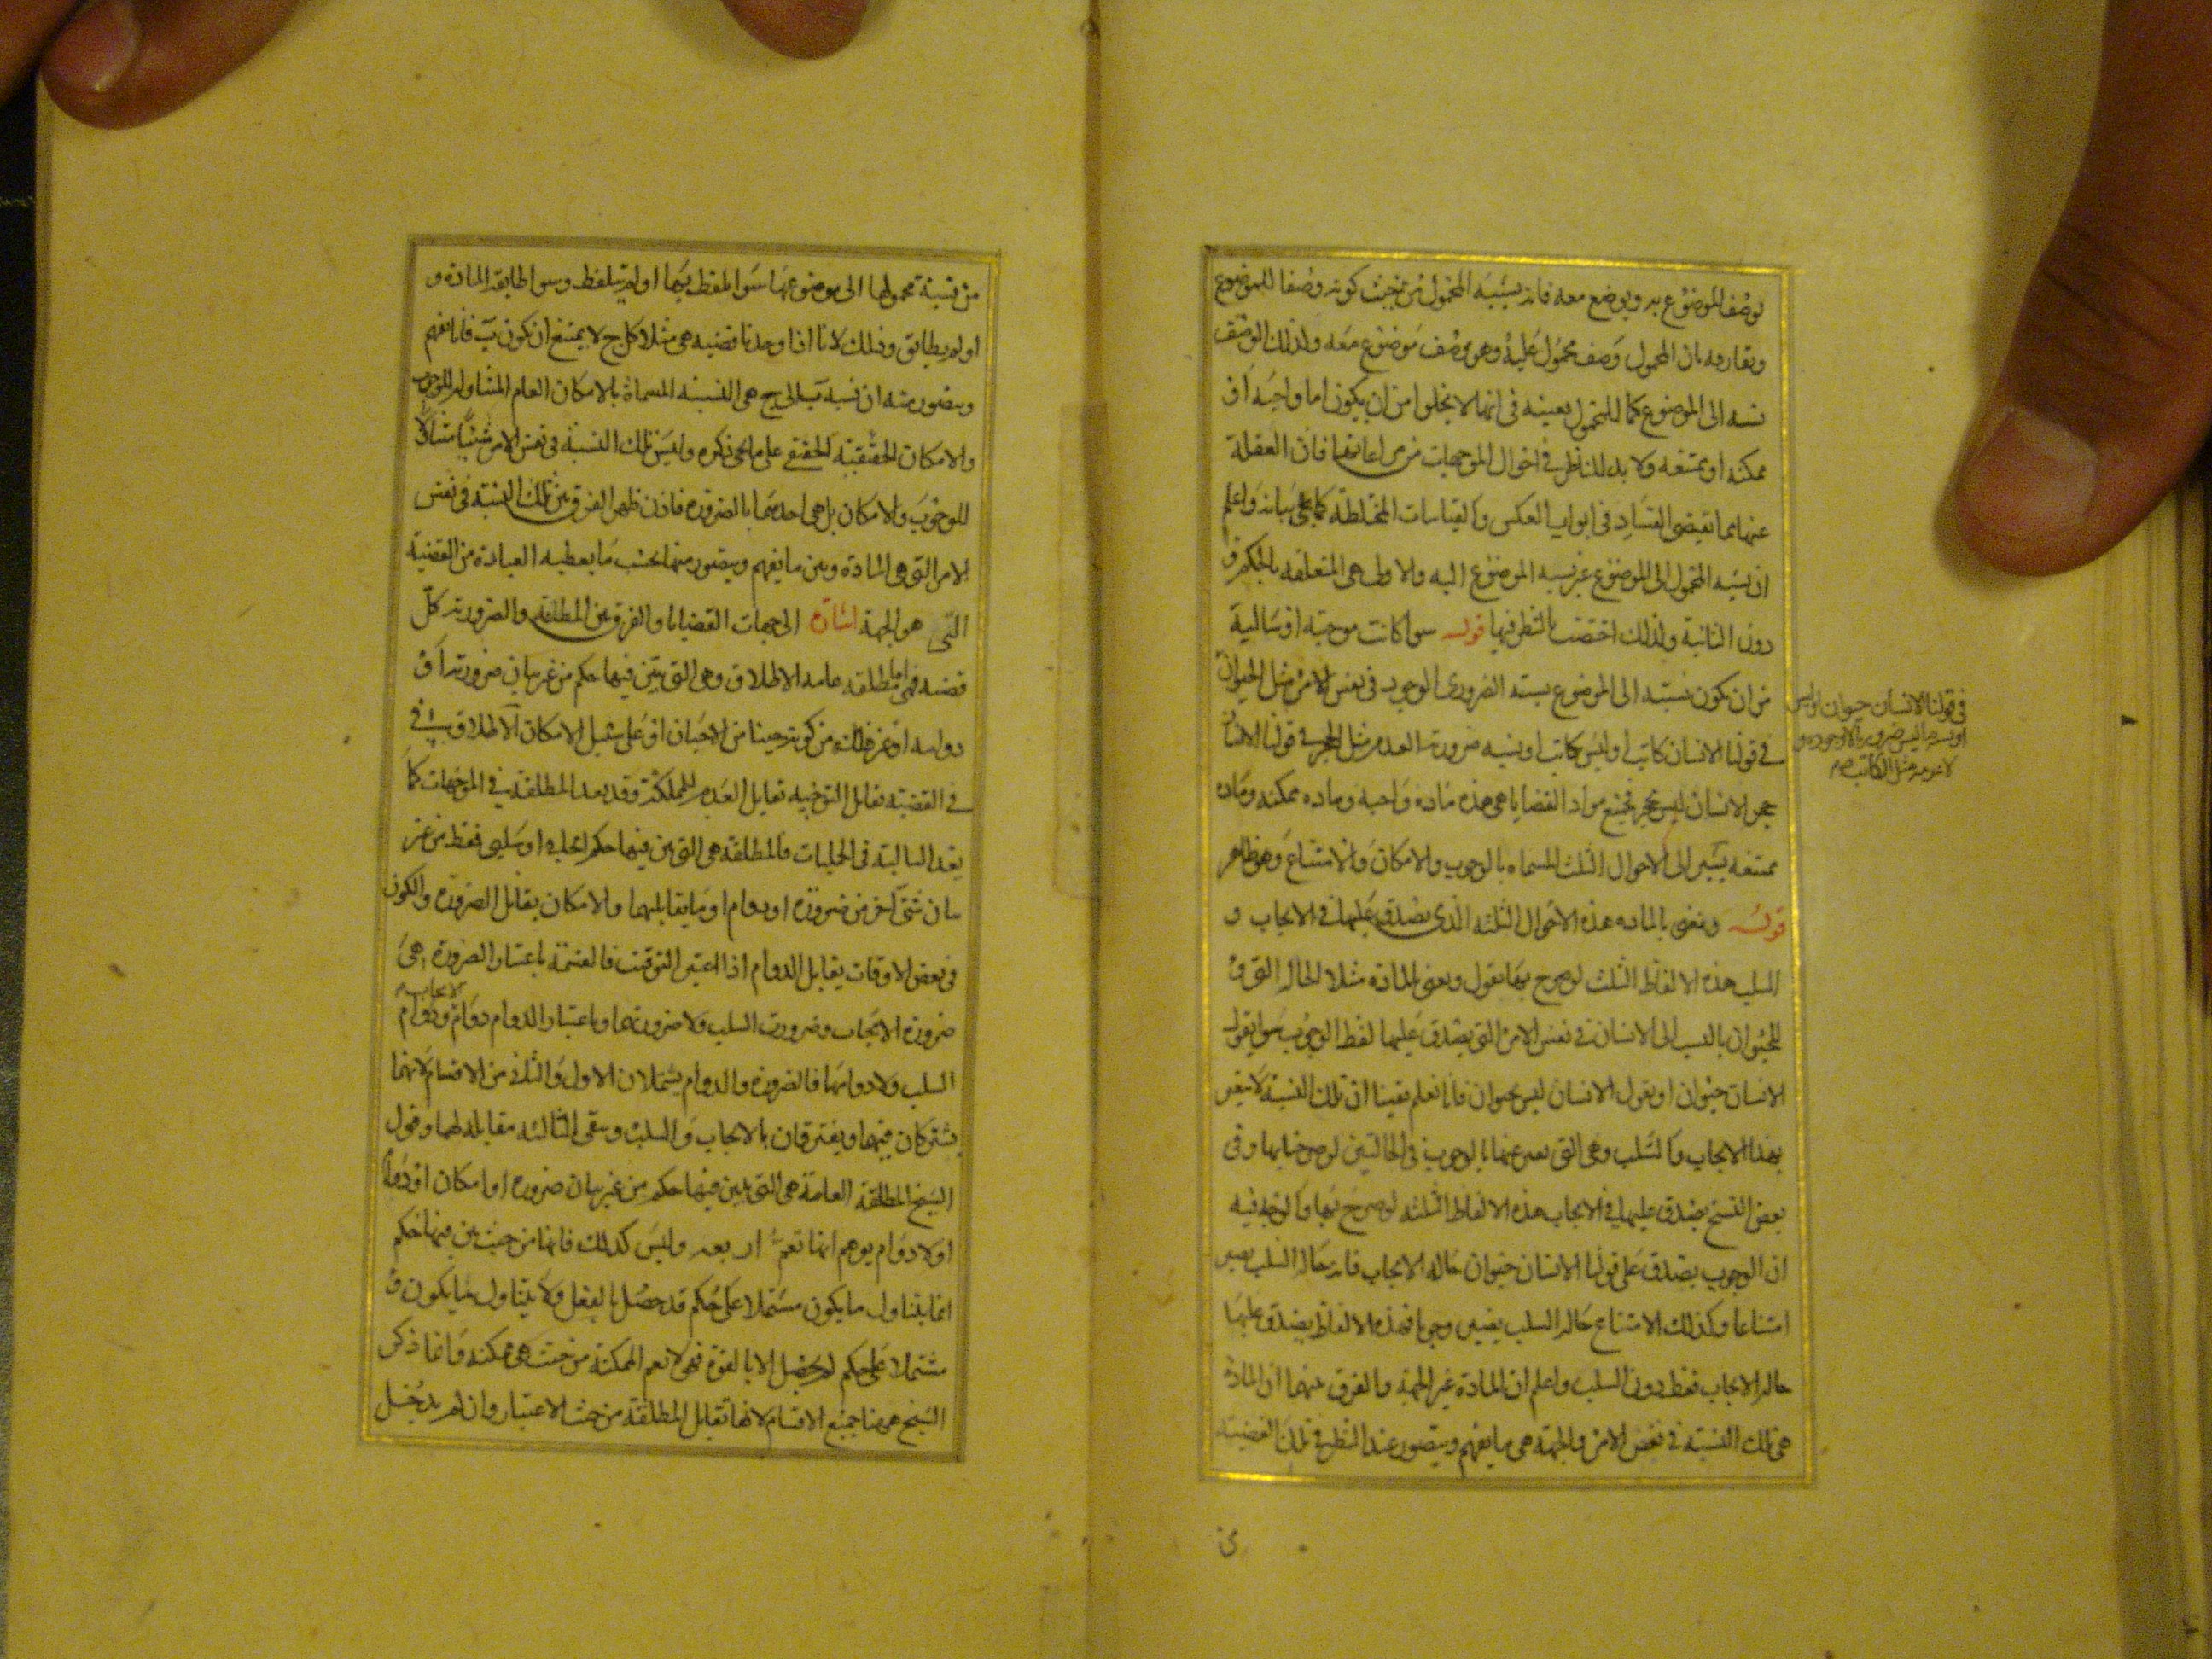 يوصف الموضوع به ويوضع معه فان نسبة المحمول من حيث كونه وصفا للموضوع
ويقارنه بان المحمول وصف محمول عليه وهو وصف موضوع معه ولذلك الوصف
نسبه الى الموضوع كما للمحمول بعينه فى انها لا يخلوا من ان يكون اما واجبه او
ممكنه او ممتنعه ولا بد للناظر فى احوال الموجهات من مراعاتها فان الغفلة
عنها مما تقتضى الفساد فى ابواب العكس والقياسات المختلطة كما يجئ بيانه واعلم
ان نسبة المحمول الى الموضوع غير نسبه الموضوع اليه والاولى هى المتعلقه بالحكم و
دون الثانية ولذلك اختصت بالنظر فيها قوله سوا كانت موجبة او سالبة
من ان يكون نسبته الى الموضوع نسبته الضرورى الوجود فى نفس الامر مثل الحيوان
فى قولنا الانسان كاتب او ليس بكاتب او نسبه ضرورت العدم مثل الحجر فى قولنا الانسان
حجر الانسان ليس بحجر فجميع مواد القضايا هى هذه ماده واجبه وماده ممكنه وماده
ممتنعه يشير الى الاحوال الثلث المسماه بالوجوب والامكان والامتناع وهو ظاهر
قوله ونعنى بالماده هذه الاحوال الثلثه الذى يصدق عليها فى الايجاب و
السلب هذه الالفاظ الثلث لو صرح بها نقول ونعنى بالمادة مثلا الحال التى و
للحيوان بالنسبه الى الانسان فى نفس الامر التى يصدق عليها لفظ الوجوب سوا نقول
الانسان حيوان او نقول الانسان ليس بحيوان فانا نعلم يقينا ان تلك النسبة لا يتغير
بهذا الايجاب والسلب وهى التى نعبر عنها بالوجوب فى الحالتين لو صرحنا بها وفى
بعض النسخ يصدق عليها فى الايجاب هذه الالفاظ الثلثه لو صرح بها والوجه فيه
ان الوجوب يصدق على قولنا الانسان حيوان حاله الايجاب فانه حاله السلب يصير
امتناعا وكذلك الامتناع حاله السلب يصير وجوبا فهذه الالفاظ يصدق عليها
حاله الايجاب فقط دون السلب واعلم ان المادة غير الجهة والفرق بينهما ان المادة
هى تلك النسبته فى نفس الامر والجهة هى ما يفهم ويتصور عند النظر فى تلك القضيته
فى قولنا الانسان حيوان او ليس
او نسبه ما ليس ضروريا لا وجوده و
لا عدمه مثل الكاتب
من
من نسبة محمولها الى موضوعها سوا تلفظ بها او لم يتلفظ وسوا طابقة المادة و
او لم يطابق وذلك لانا اذا وجدنا قضيه هى مثلا كل ج لا يمتنع ان تكون ب فانا نفهم
ويتصور منه ان نسبه ب الى ج هى النسبه المسماة بالامكان العام المتناول للوجوب
والامكان الحقيقية الحقيقى على ما يجئ ذكره وليس تلك النسبة فى نفس الامر شيئا متناولا
للوجوب والامكان بل هى احديهما بالضروره فاذن ظهر الفرق بين تلك النسبته فى نفس
الامر التى هى المادة وبين ما يفهم ويتصور منها بحسب ما يعطيه العبارة من القضية
التى هو الجهة اشارة الى جهات القضايا والفرق بين المطلقه والضروريه كل
قضيه فهى اما مطلقه عامه الاطلاق وهى التى بين فيها حكم من غير بيان ضرورته او
دوامه او غير ذلك من كونه حينا من الاحيان او على سبيل الامكان الاطلاق
فى القضيته تقابل التوجيه تقابل العدم للملكة وقد يعد المطلقه فى الموجهات كما
يعد السالبة فى الحمليات فالمطلقه هى التى بين فيها حكم ايجابى او سلبى فقط من غير
بيان شئ آخر من ضرورة او دوام او ما يقابلهما والامكان يقابل الضرورة والكون
فى بعض الاوقات يقابل الدوام اذا اعتبر التوقيت فالقسمة باعتبار الضرورة هى
ضرورة الايجاب وضرورة السلب ولا ضرورتهما وباعتبار الدوام دوام الايجاب ودوام
السلب ولا دوامهما فالضرورة والدوام يشملان الاول والثانى من الاقسام لانهما
يشتركان فيهما ويفترقان بالايجاب والسلب وبقى الثالثه مقابله لهما وقول
الشيخ المطلقة العامة هى التى بين فيها حكم من غير بيان ضروره او امكان او دوام
او لا دوام يوهم انها تعم اربعه وليس كذلك فانها من حيث بين فيها حكم
انما يتناول ما يكون مشتملا على حكم قد حصل بالفعل ولا يتناول ما يكون و
مشتملا على حكم لم يحصل الا بالقوة فهى لا تعم الممكنة من حيث هى ممكنه وانما ذكر
الشيخ ههنا جميع الاقسام لانها تقابل المطلقة من حيث الاعتبار وان لم يدخل